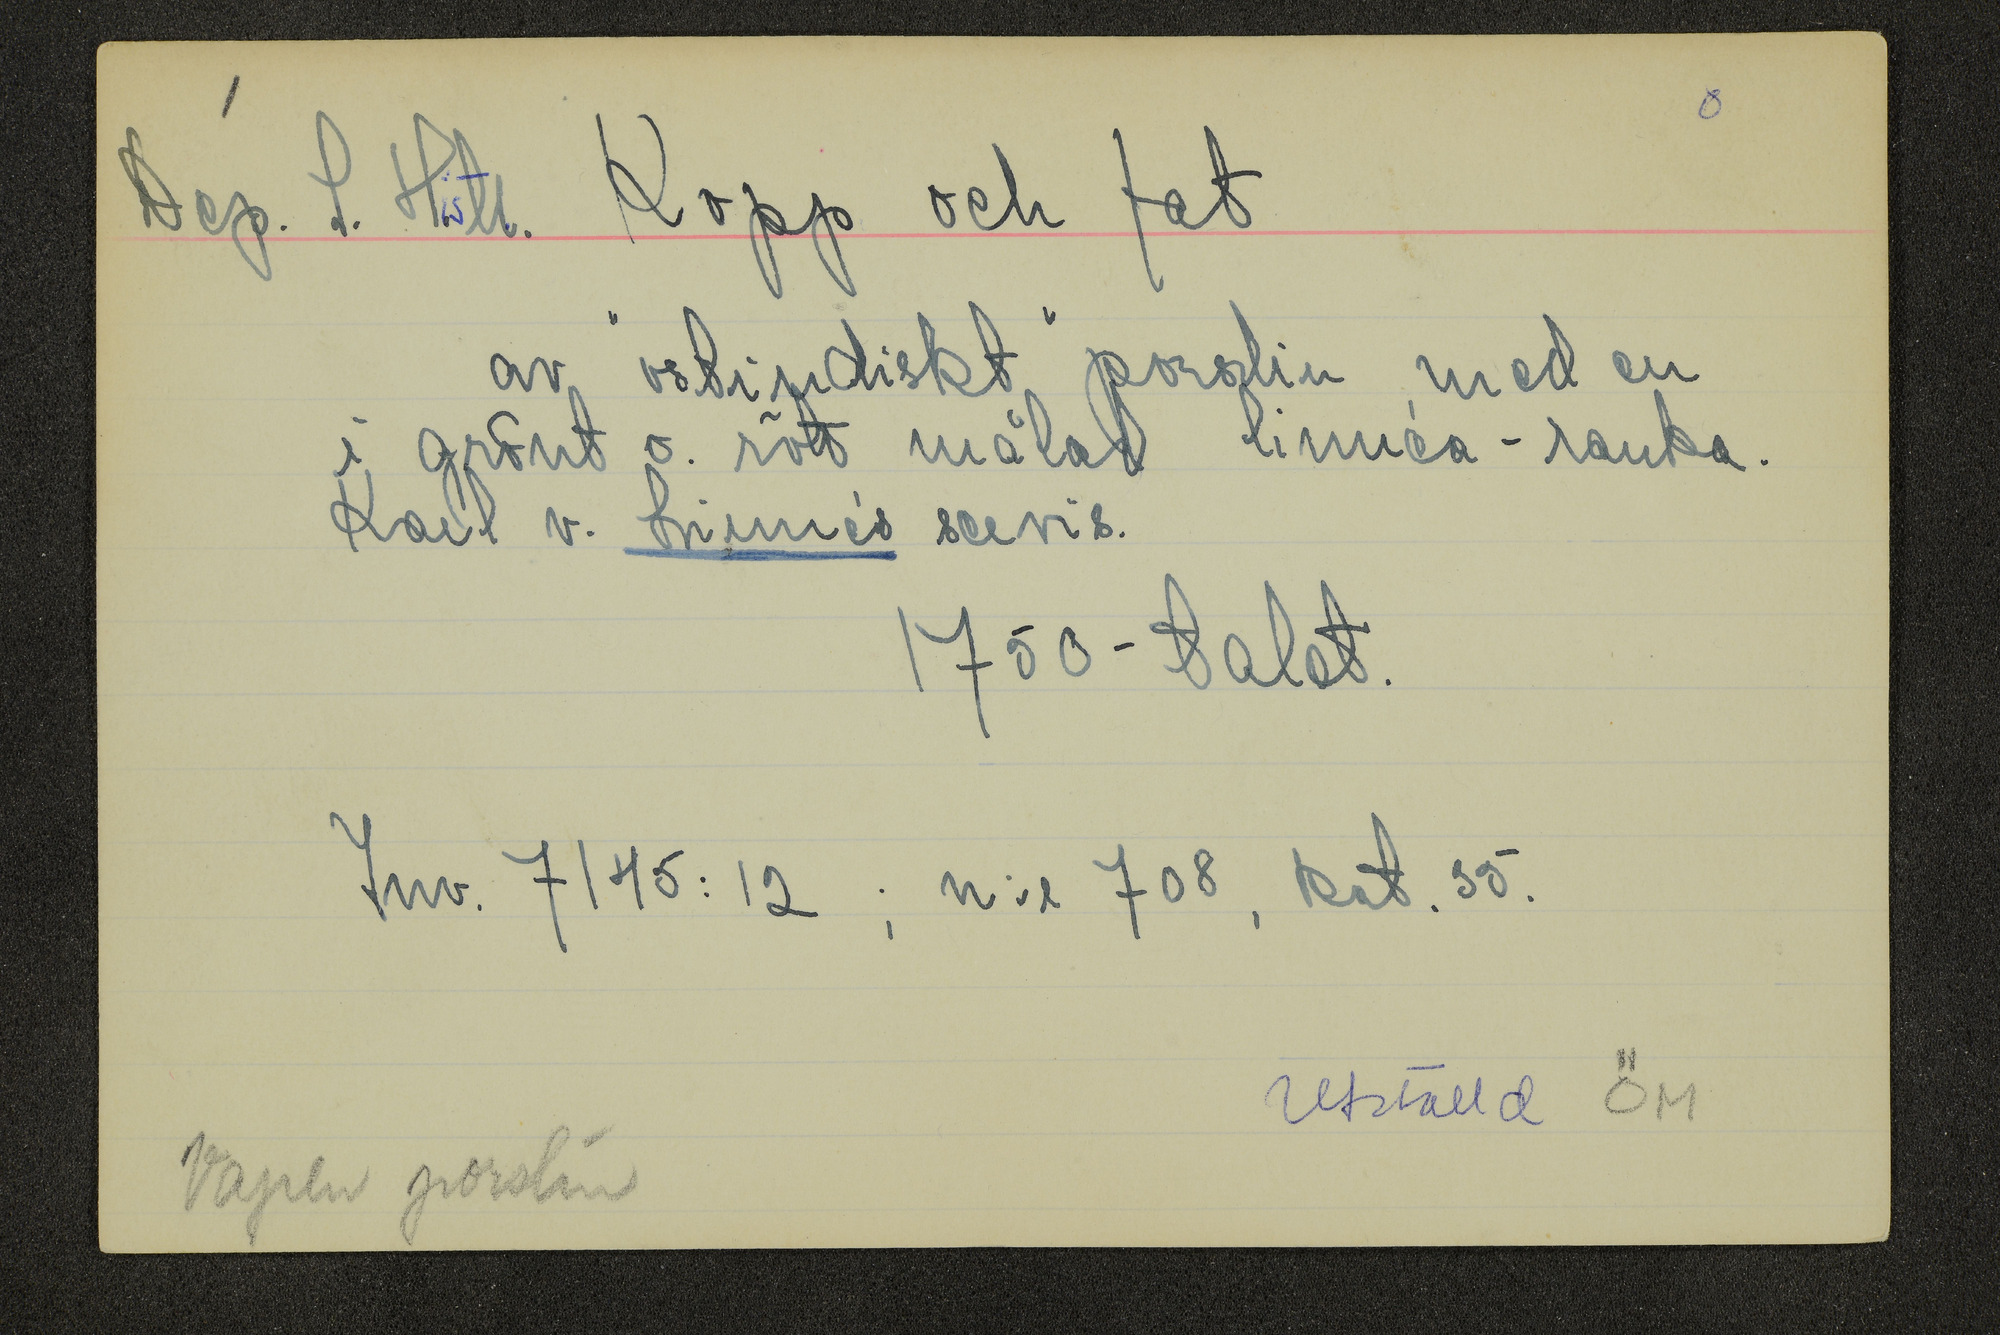 1 8
Dep. S. Hist. Kopp och fat
av "ostindiskt" porslin med en
i grönt o. rött målad linnéa-ranka.
Karl v. Linnés servis.
1750-talet.
Inv. 7145:12 ; n:r 708, kat. 35.
Utställd ÖM
Vapen porslin